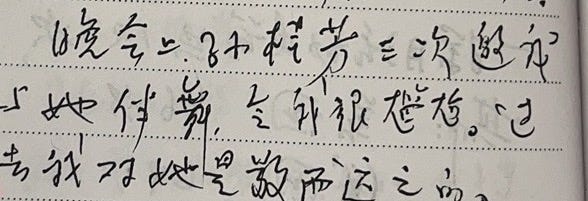 晚会上，孙桂芳三次邀我
与她伴舞，令我很尴尬。过
去我对她是敬而远之的。